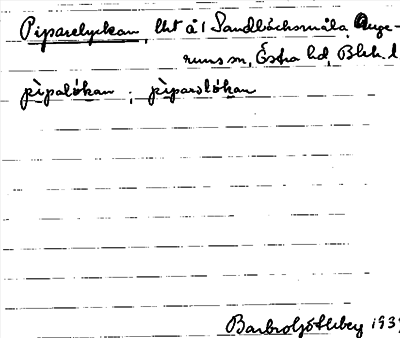 Piparelyckan, lht å 1 Sandbäcksmåla, Auge-
rums sn, Östra hd, Blek. l
pìpalỏkan ; pìparəlỏkan
Barbro Götlibey 193